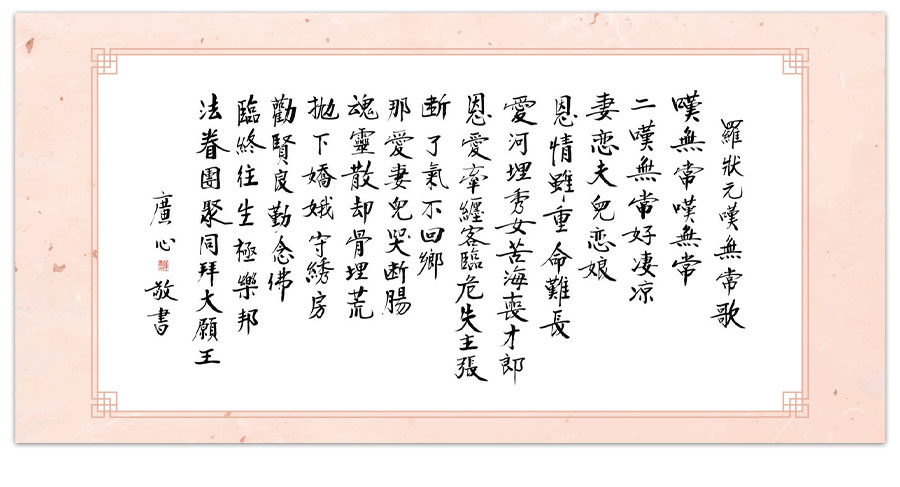 羅狀元嘆無常歌
嘆無常嘆無常
二嘆無常好凄凉
妻恋夫兒恋娘
恩情雖重命難長
愛河埋秀女苦海喪才郎
恩愛牽纏客臨危失主張
断了氣不回鄉
那愛妻兒哭断腸
魂靈散却骨埋荒
拋下嬌娥守绣房
勸賢良勤念佛
臨終往生極樂邦
法眷團聚同拜大願王
廣心
敬書